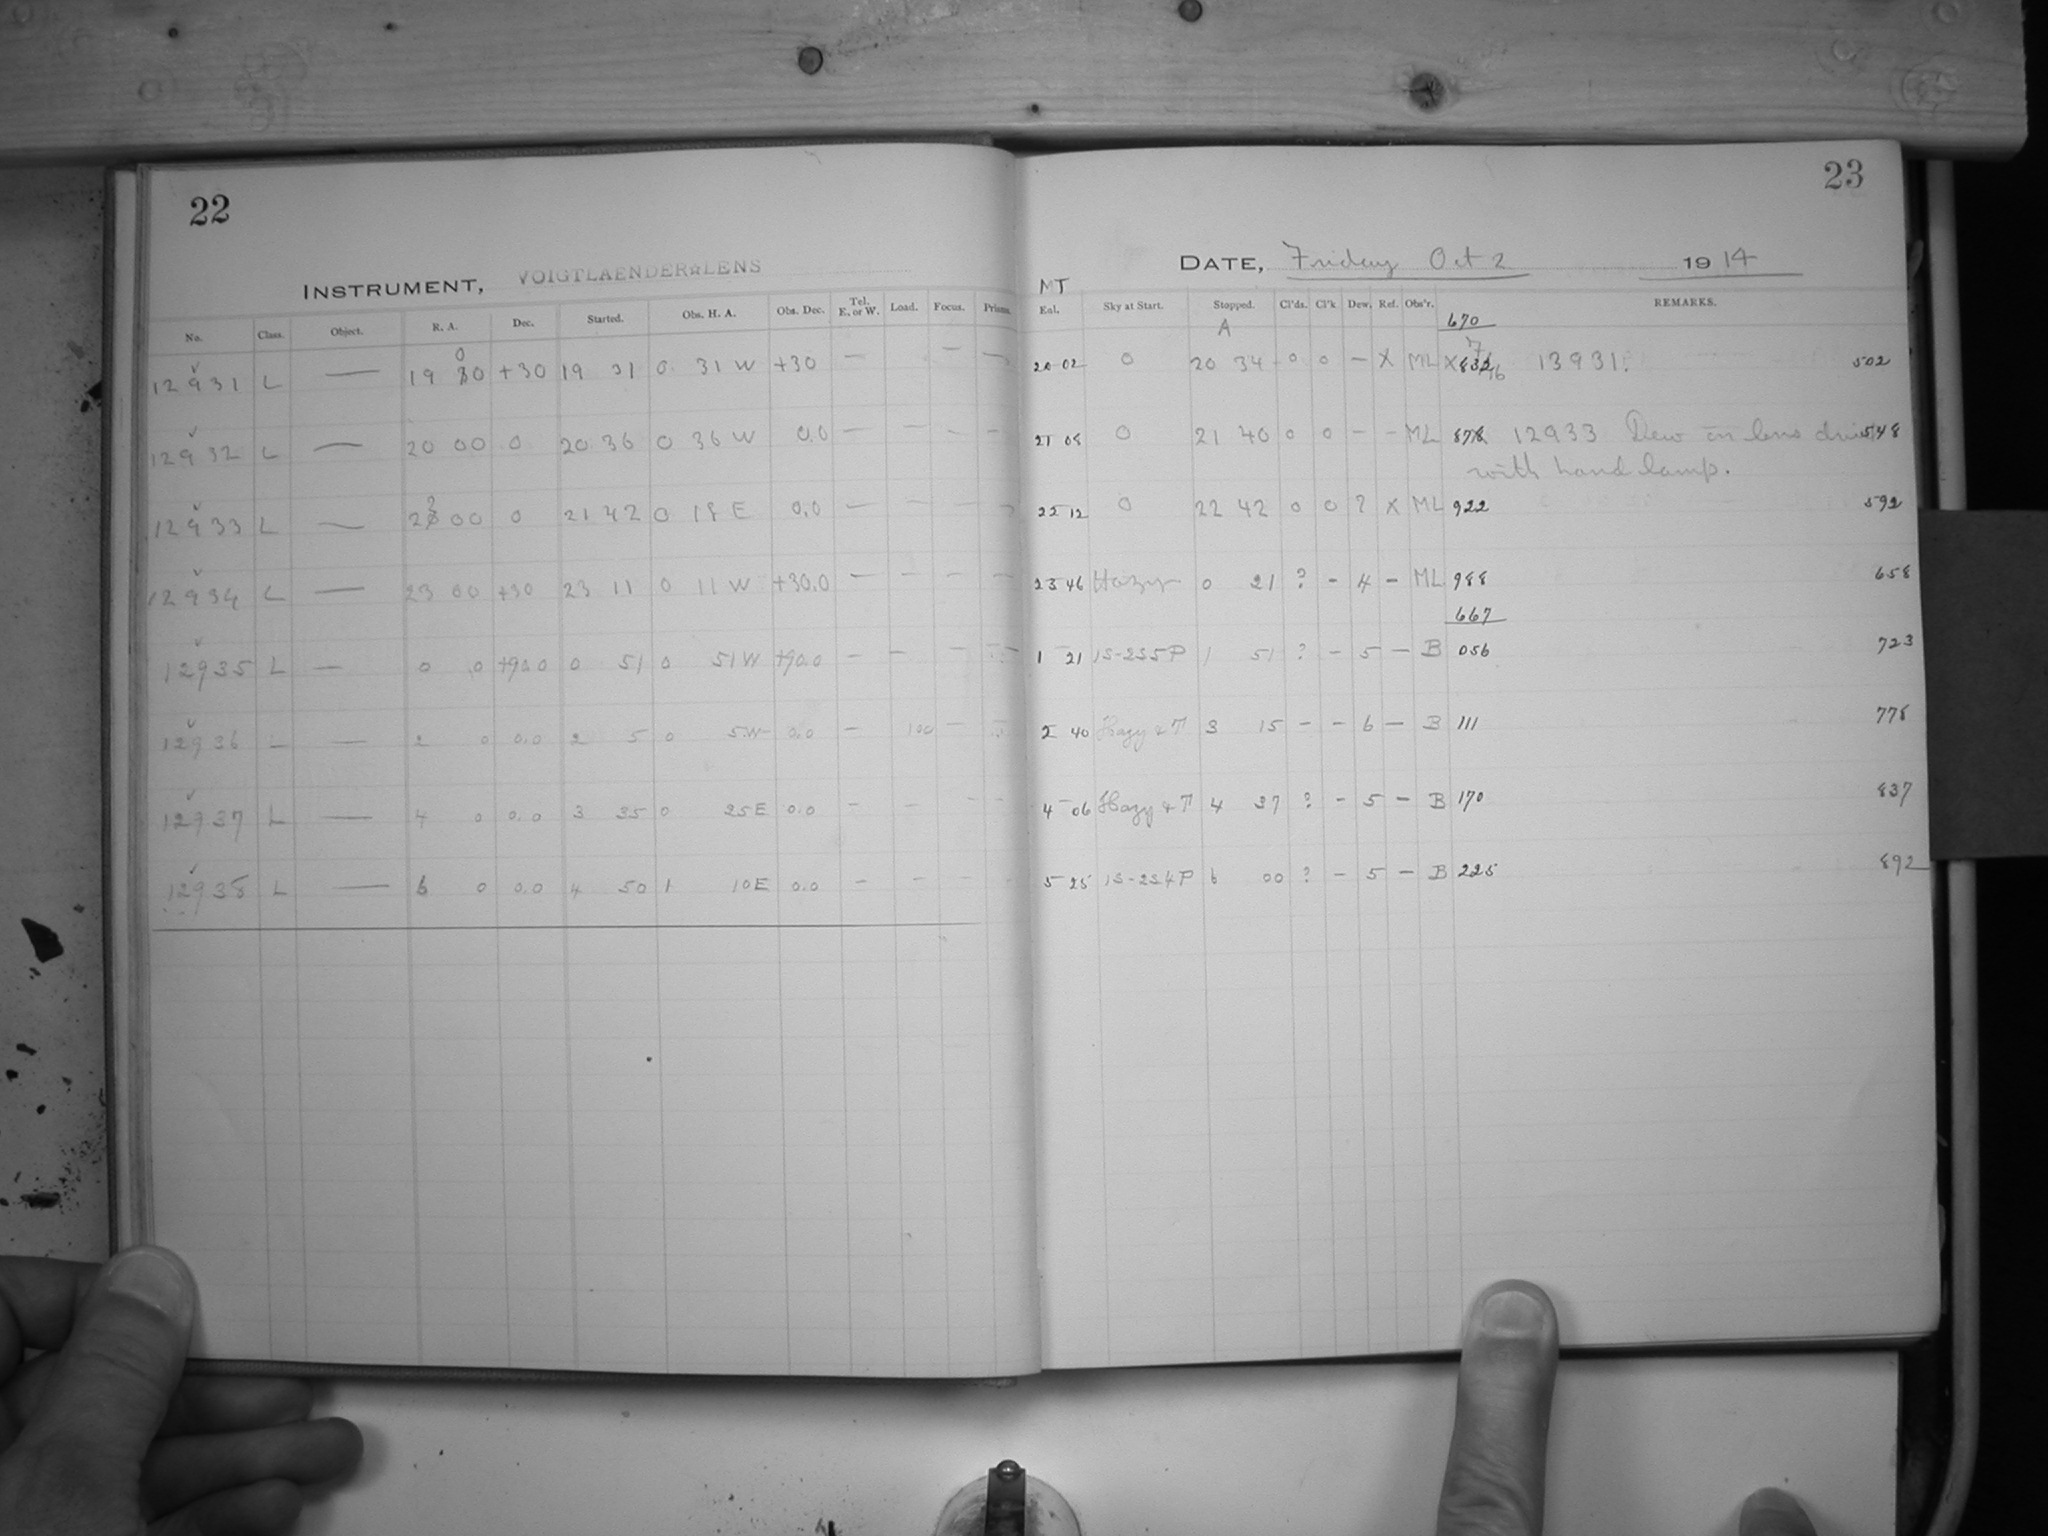 22
23
INSTRUMENT, VOIGTLAENDER LENS
DATE, Friday Oct 2 1914
MT
No. Class. Object. R. A. Dec. Started. Obs. H. A. Obs. Dec. Tel. E. or W. Load. Focus. Prisms. Enl. Sky at Start. Stopped. Cl'ds. Cl'k Dew. Ref. Obs'r. REMARKS.
A 670
12931 L — 19 00 +30 19 31 0 31 W +30 — — — 20 02 0 20 34 0 0 — X ML X 13931. 502
12932 L — 20 00 0 20 36 0 36 W 0.0 — — — — 21 08 0 21 40 0 0 — — ML 878 12933 Dew on lens 548
with hand lamp.
12933 L — 22 00 0 21 42 0 18 E 0.0 — — — — 22 12 0 22 42 0 0 ? X ML 922 592
12934 L — 23 00 +30 23 11 0 11 W +30.0 — — — — 23 46 Hazy 0 21 ? - 4 - ML 988 658
667
12935 L — 0 0 +90.0 0 51 0 51 W +90.0 — — — 1 21 1S-2S5P 1 51 ? - 5 — B 056 723
12936 L — 2 0 0.0 2 5 0 5 W 0.0 — 100 — 2 40 Hazy & T 3 15 - - 6 — B 111 778
12937 L — 4 0 0.0 3 35 0 25 E 0.0 — — — — 4 06 Hazy & T 4 37 ? - 5 — B 170 837
12938 L — 6 0 0.0 4 50 1 10 E 0.0 — — — — 5 25 1S-2S4P 6 00 ? - 5 — B 225 892